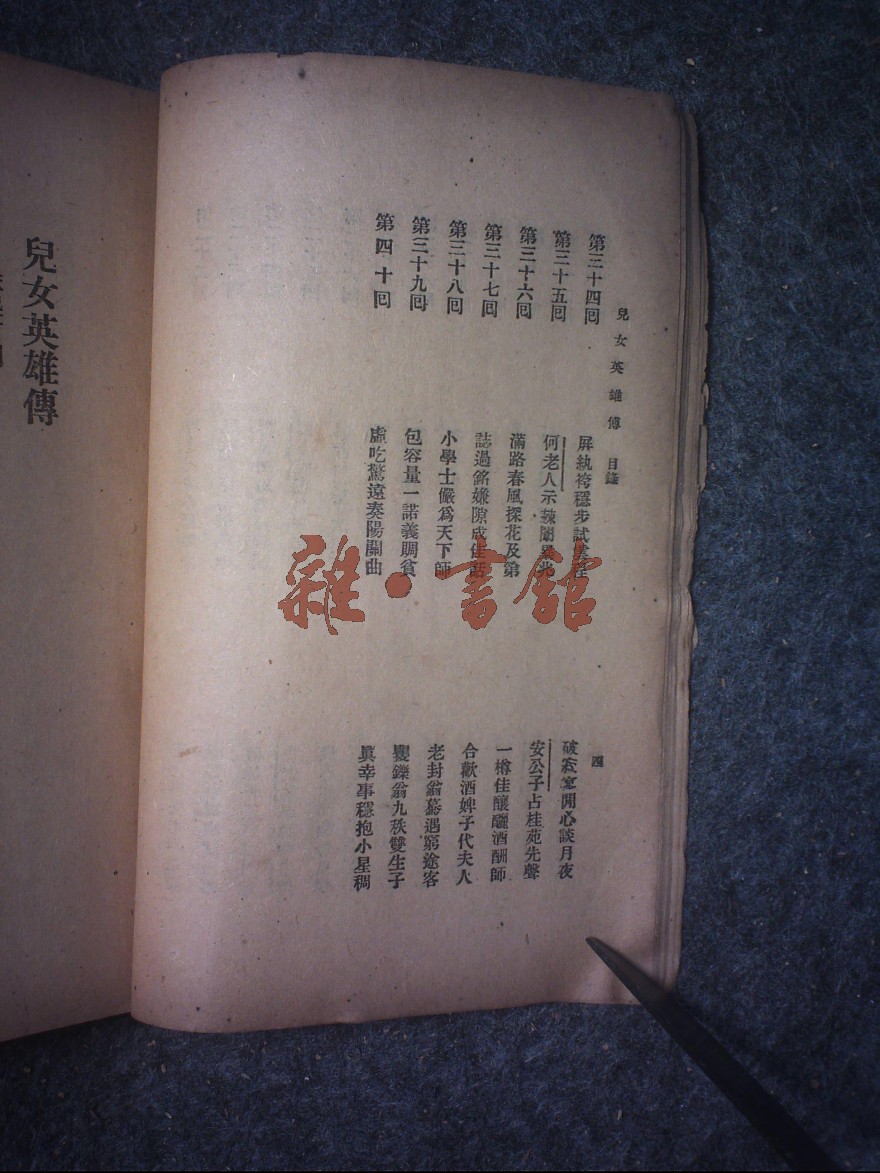 兒女英雄傳 目錄 四
第三十四回 屏紈袴穩步試 破寂寥閒心談月夜
第三十五回 何老人示棘闈異兆 安公子占桂苑先聲
第三十六回 滿路春風探花及第 一樽佳釀釃酒酬師
第三十七回 誌過銘嫌隙成佳話 合歡酒婢子代夫人
第三十八回 小學士儼爲天下師 老封翁驀遇窮途客
第三十九回 包容量一諾義賙貧 矍鑠翁九秩雙生子
第四十回 虛吃驚遠奏陽關曲 眞幸事穩抱小星稠
兒女英雄傳
雜·書館